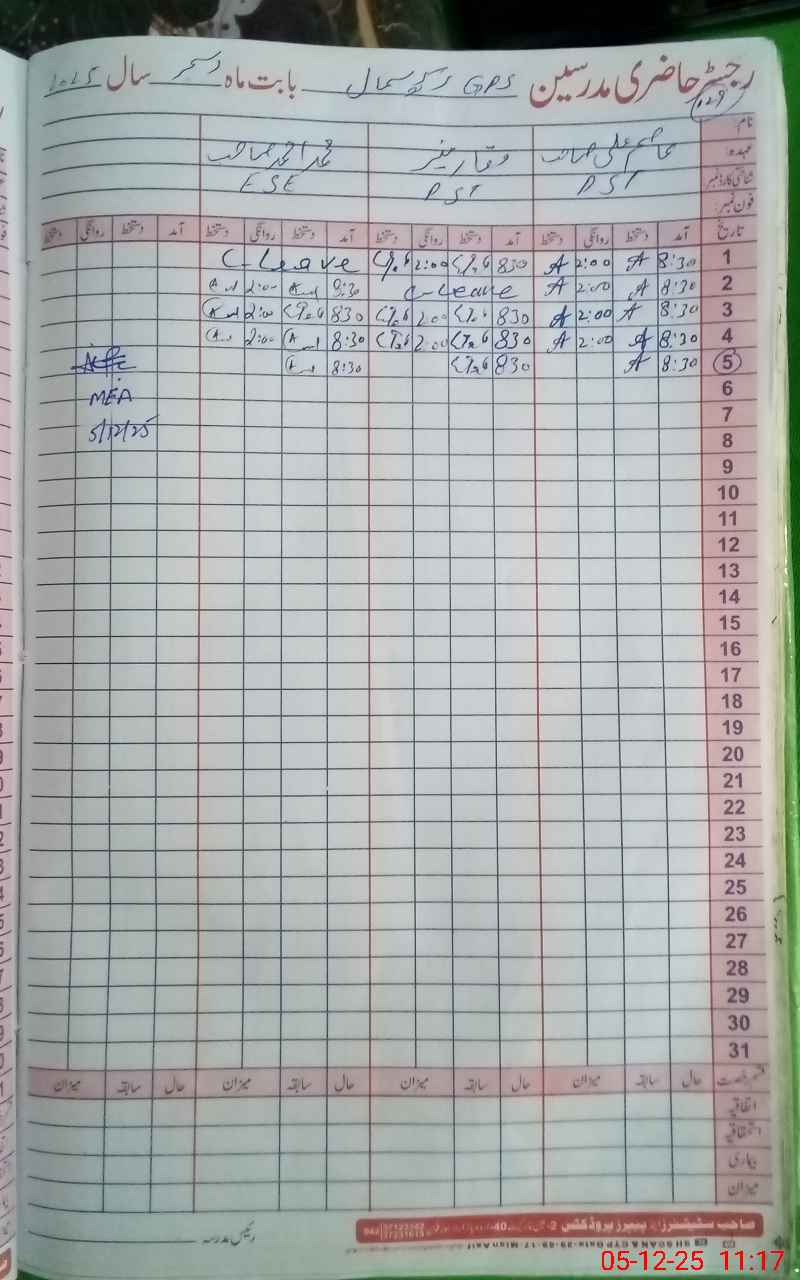 رجسٹر حاضری مدرسین GPS بابت ماہ دسمبر سال 2025
029
نام:
عہدہ: عاصم علی صاحب وقار منیر محمد احمد صاحب
شناختی کارڈ نمبر PST PST ESE
فون نمبر:
تاریخ آمد دستخط روانگی دستخط آمد دستخط روانگی دستخط آمد دستخط روانگی دستخط آمد دستخط روانگی دستخط
1 8:30 A 2:00 A 830 2:00 C-Leave
2 8:30 A 2:00 A C-Leave 8:30 2:00
3 8:30 A 2:00 A 830 2:00 830 2:00
4 8:30 A 2:00 A 830 2:00 8:30 2:00
5 8:30 A 830 8:30
6 MEA
7
8 5/12/25
9
10
11
12
13
14
15
16
17
18
19
20
21
22
23
24
25
26
27
28
29
30
31
قسم رخصت حال سابقہ میزان حال سابقہ میزان حال سابقہ میزان حال سابقہ میزان
اتفاقیہ
استحقاقیہ
بیماری
میزان
رئیس مدرسہ
صاحب سٹیشنرز اینڈ پیپرز پروڈکٹس
05-12-25 11:17